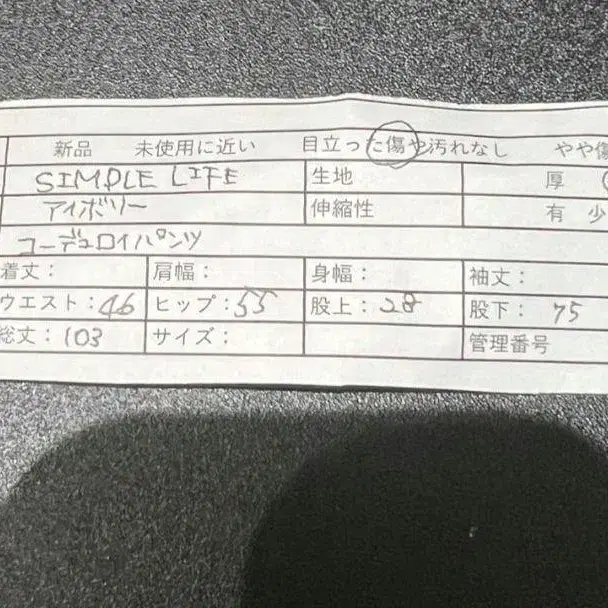 新品 未使用に近い 目立った傷や汚れなし やや傷
SIMPLE LIFE 生地 厚
アイボリー 伸縮性 有 少
コーデュロイパンツ
着丈： 肩幅： 身幅： 袖丈：
ウエスト：46 ヒップ：55 股上：28 股下：75
総丈：103 サイズ： 管理番号